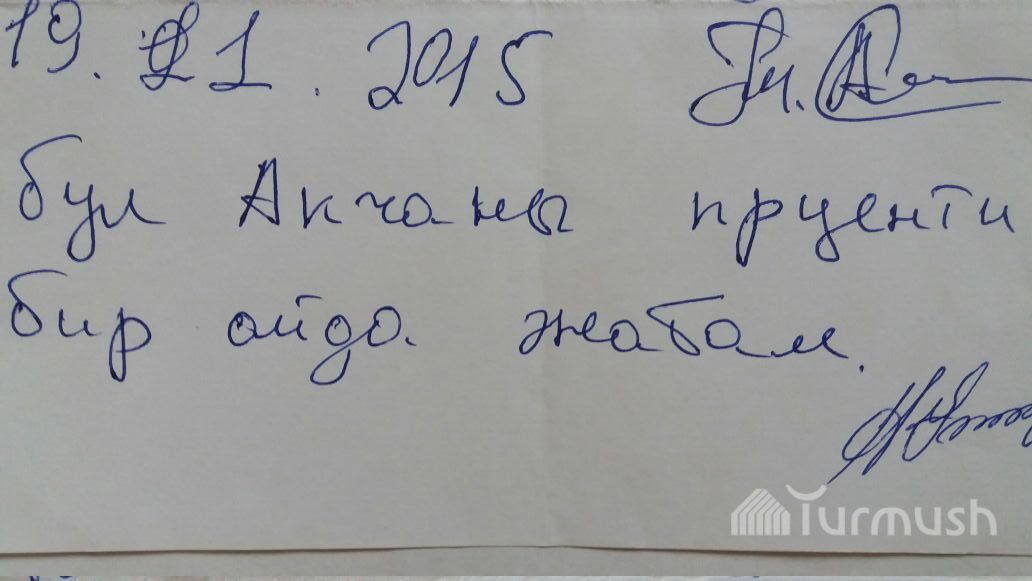 19. 11. 2015
бул Акчаны пруценти
бир айда жабам.
Turmush